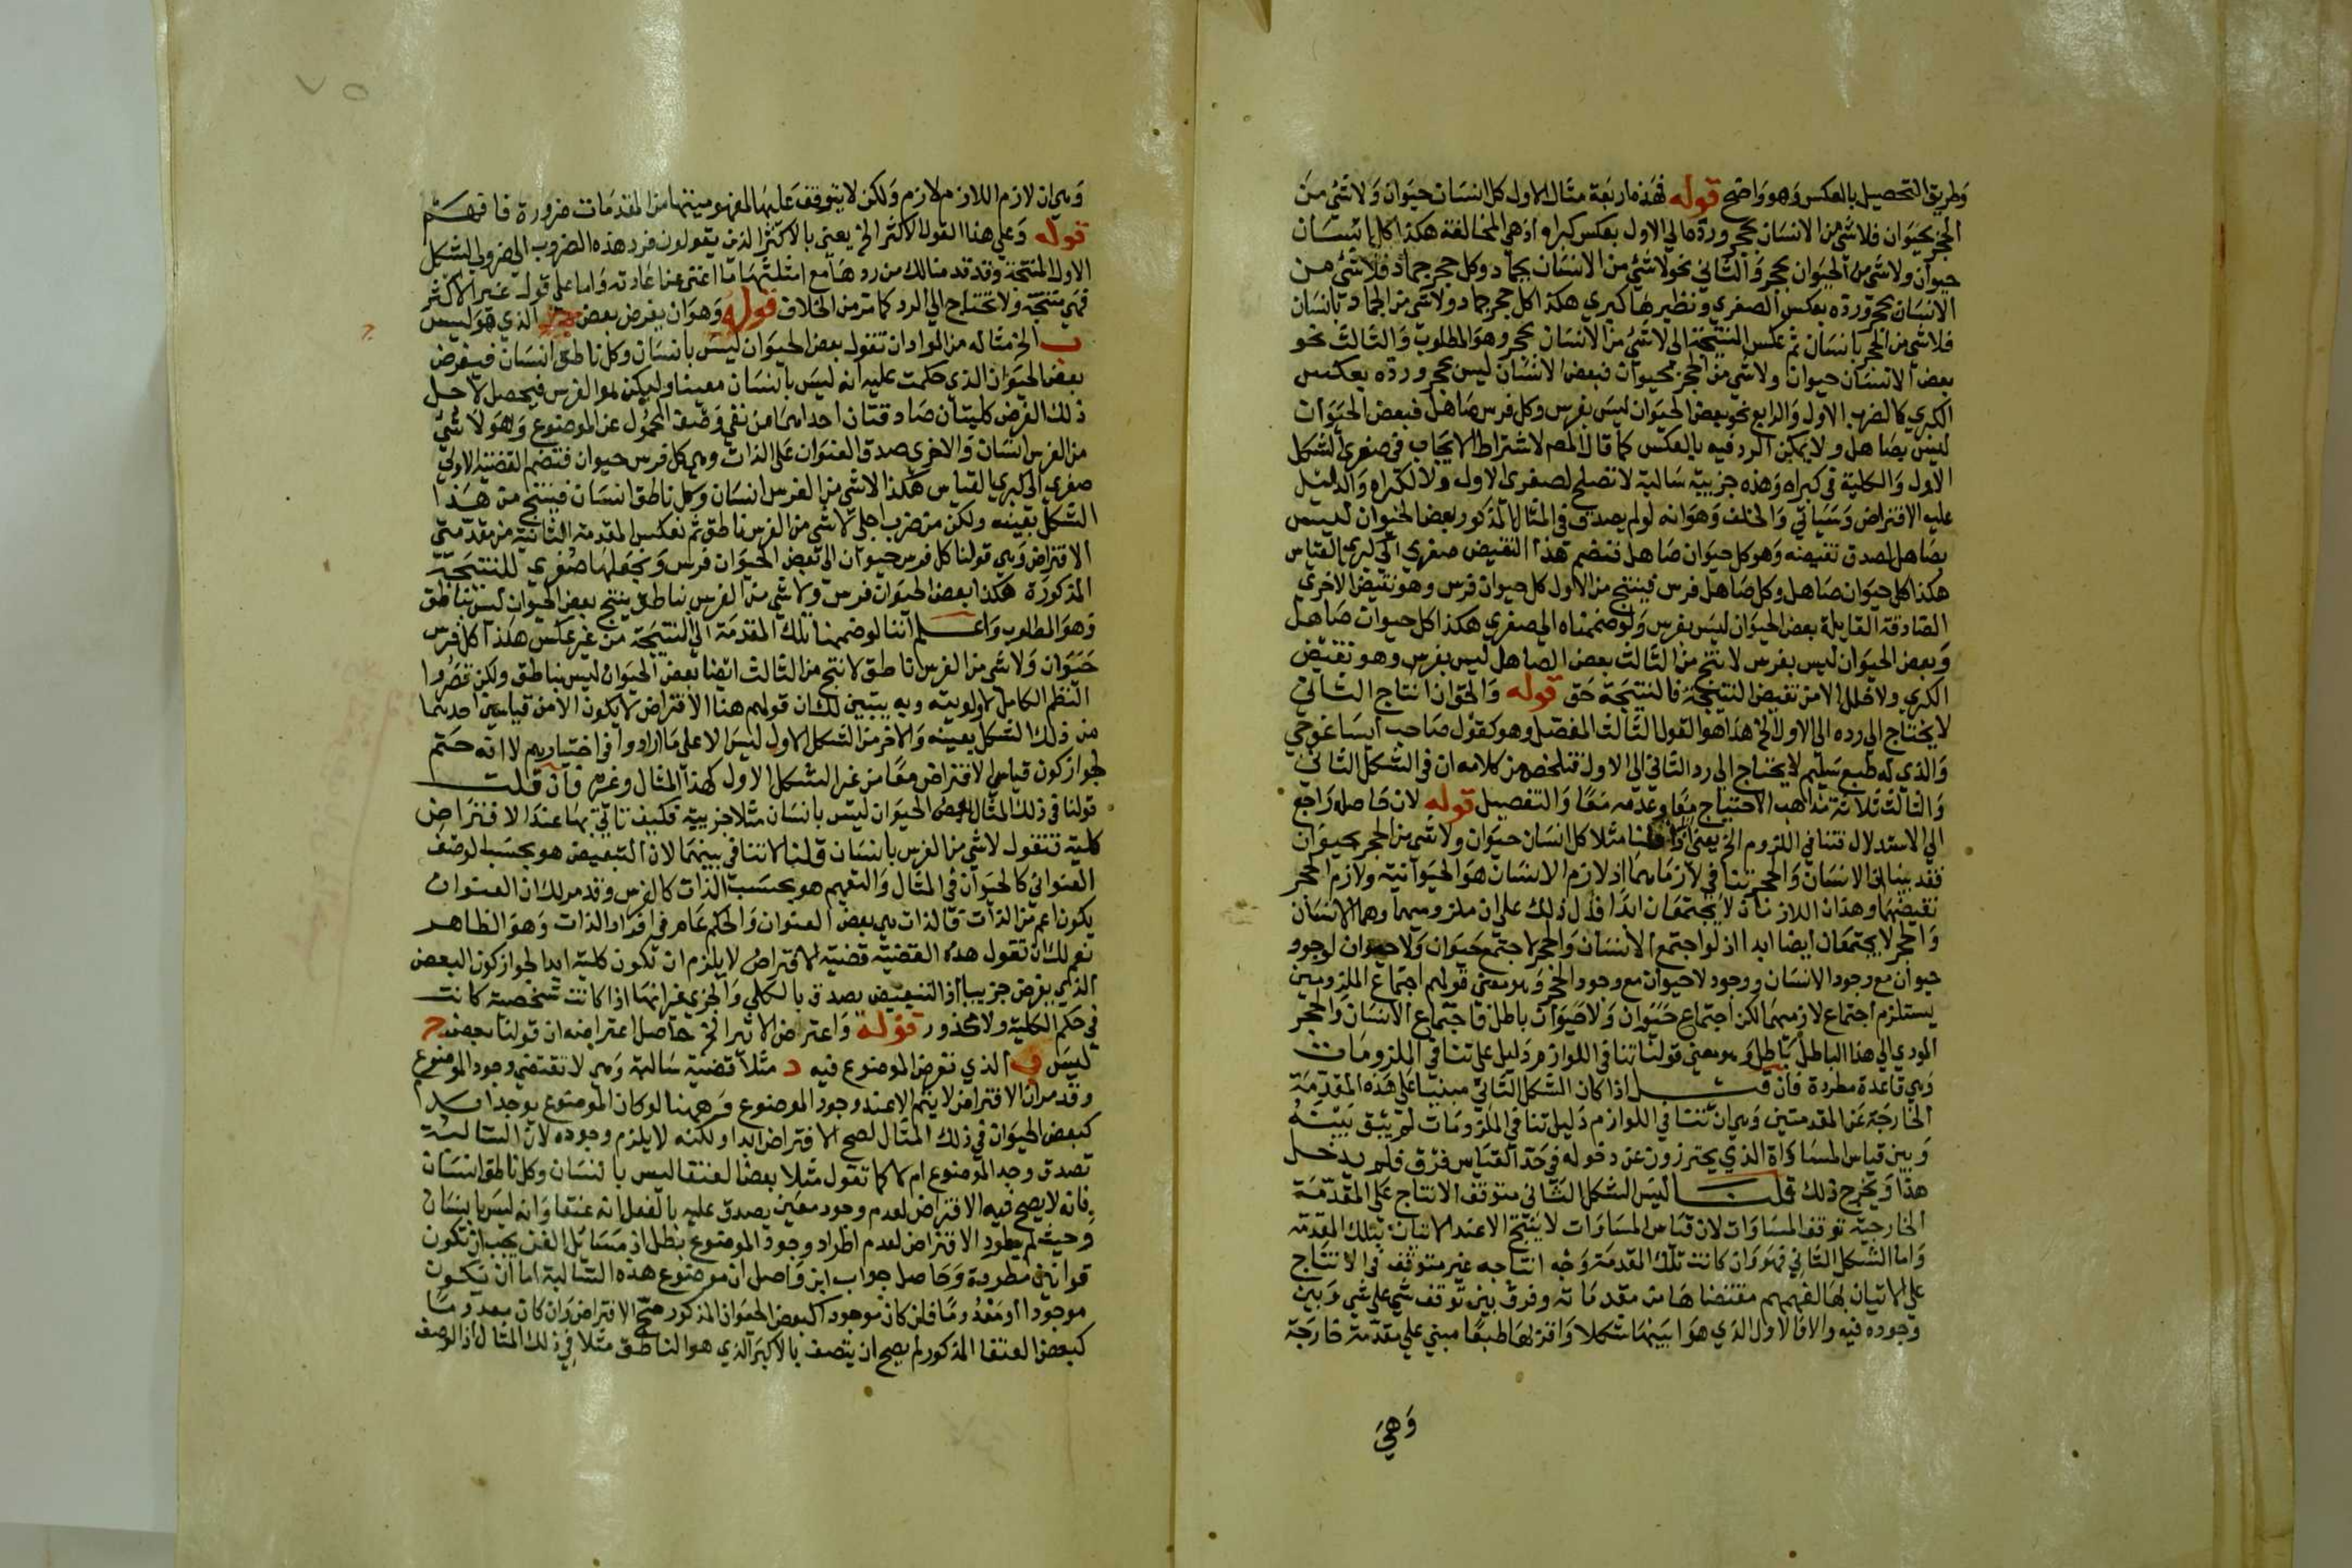 وطريق التحصيل بالعكس وهو واضح قوله فهذه اربعة مثال الاول كل انسان حيوان ولا شئ من
الحجر بحيوان فلا شئ من الانسان بحجر ورده الى الاول بعكس كبراه اذ هى المخالفة هكذا كل انسان
حيوان ولا شئ من الحيوان بحجر والثانى نحو لا شئ من الانسان بجماد وكل حجر جماد فلا شئ من
الانسان بحجر ورده بعكس الصغرى ونظيرها كبرى هكذا كل حجر جماد ولا شئ من الجماد بانسان
فلا شئ من الحجر بانسان ثم عكس النتيجة الى لا شئ من الانسان بحجر وهو المطلوب والثالث نحو
بعض الانسان حيوان ولا شئ من الحجر بحيوان فبعض الانسان ليس بحجر ورده بعكس
الكبرى كالضرب الاول والرابع نحو بعض الحيوان ليس بفرس وكل صاهل فرس فبعض الحيوان
ليس بصاهل ولا يمكن الرد فيه بالعكس كما قال المص لاشتراط الايجاب فى صغرى الشكل
الاول والكلية فى كبراه وهذه جزيية سالبة لا تصلح لصغرى الاول ولا لكبراه والدليل
عليه الافتراض وسياتى والخلف وهو انه لو لم يصدق فى المثال المذكور بعض الحيوان ليس
بصاهل لصدق نقيضه وهو كل حيوان صاهل فنضم هذا النقيض صغرى الى كبرى القياس
هكذا كل حيوان صاهل وكل صاهل فرس فينتج من الاول كل حيوان فرس وهو نقيض الاخرى
الصادقة القايلة بعض الحيوان ليس بفرس ولو ضممناه الى صغرى هكذا كل حيوان صاهل
وبعض الحيوان ليس بفرس لانتج من الثالث بعض الصاهل ليس بفرس وهو نقيض
الكبرى ولا خلل الا من نقيض النتيجة فالنتيجة حق قوله والحق ان انتاج الثانى
لا يحتاج الى رده الى الاول الخ هذا هو القول الثالث المفصل وهو كقول صاحب ايساغوجى
والذى له طبع سليم لا يحتاج الى رد الثانى الى الاول فتلخص من كلامه ان فى الشكل الثانى
والثالث ثلاثة مذاهب الاحتياج معا وعدمه معا والتفصيل قوله لان حاصله راجع
الى الاستدلال بتنافى اللزوم الخ يعنى اذا قلنا مثلا كل انسان حيوان ولا شئ من الحجر بحيوان
فقد بينا ان الانسان والحجر تنافى لازماهما اذ لازم الانسان هو الحيوانية ولازم الحجر
نقيضها وهذان اللازمان لا يجتمعان ابدا فدل ذلك على ان ملزوميهما وهما الانسان
والحجر لا يجتمعان ايضا ابدا اذ لو اجتمع الانسان والحجر لاجتمع حيوان ولا حيوان لوجود
حيوان مع وجود الانسان ووجود لا حيوان مع وجود الحجر وهو معنى قولهم اجتماع الملزومين
يستلزم اجتماع لازميهما لكن اجتماع حيوان ولا حيوان باطل فاجتماع الانسان والحجر
المودى الى هذا الباطل باطل وهو معنى قولنا تنافى اللوازم دليل على تنافى الملزومات
وهى قاعدة مطردة فان قلت اذا كان الشكل الثانى مبنيا على هذه المقدمة
الخارجة عن المقدمتين وهى ان تنافى اللوازم دليل تنافى الملزومات لم يبق بينه
وبين قياس المساواة الذى يحترزون عن دخوله فى حد القياس فرق فلم يدخل
هذا ويخرج ذلك قلت ليس الشكل الثانى متوقف الانتاج على المقدمة
الخارجية توقف المساوات لان قياس المساوات لا ينتج الا عند الاتيان بتلك المقدمة
واما الشكل الثانى فهو وان كانت تلك المقدمة وجه انتاجه غير متوقف فى الانتاج
على الاتيان بها لفهمهم مقتضاها من مقدماته وفرق بين توقف شئ على شئ وبين
وجوده فيه والا فالاول الذى هو ابينها شكلا واقربها طبعا مبنى على مقدمة خارجة
وهى
وهى ان لازم اللازم لازم ولكن لا يتوقف عليها لفهم مبينها من المقدمات ضرورة فافهم
قوله وعلى هذا القول الاكثر الخ يعنى بالاكثر الذين يقولون فرد هذه الضروب الى ضروب الشكل
الاول المنتجة وقد قدمنا لك من ردها مع امثلتها ما اغنى عن اعادته واما على قول غير الاكثر
فهى منتجة ولا تحتاج الى الرد كما مر من الخلاف قوله وهو ان يفرض بعض ج الذى هو ليس
ب الخ مثاله من المواد ان تقول بعض الحيوان ليس بانسان وكل ناطق انسان فيفرض
بعض الحيوان الذى حكمت عليه انه ليس بانسان معينا وليكن هو الفرس فيحصل لاجل
ذلك الفرض كليتان صادقتان احداهما من نفى وصف المحمول عن الموضوع وهو لا شئ
من الفرس انسان والاخرى صدق العنوان على الذات وهى كل فرس حيوان فتضم القضية الاولى
صغرى الى كبرى القياس هكذا لا شئ من الفرس انسان وكل ناطق انسان فينتج من هذا
الشكل بعينه ولكن من ضرب اجلى لا شئ من الفرس ناطق ثم نعكس المقدمة الثانية من مقدمتى
الافتراض وهى قولنا كل فرس حيوان الى بعض الحيوان فرس ونجعلها صغرى للنتيجة
المذكورة هكذا بعض الحيوان فرس ولا شئ من الفرس بناطق ينتج بعض الحيوان ليس بناطق
وهو المطلوب واعلم اننا لو ضممنا تلك المقدمة الى النتيجة من غير عكس هكذا كل فرس
حيوان ولا شئ من الفرس ناطق لانتج من الثالث ايضا بعض الحيوان ليس بناطق ولكن قصدوا
النظم الكامل لاولويته وبه يتبين لك ان قولهم هنا الافتراض لا يكون الا من قياسين احدهما
من ذلك الشكل بعينه والاخر من الشكل الاول ليس الا على ما ارادوا فى اختيارهم لا انه حتم
لجواز كون قياس الافتراض معا من غير الشكل الاول كهذا المثال وغيره فان قلت
قولنا فى ذلك المثال بعض الحيوان ليس بانسان مثلا جزيية فكيف تاتى بها عند الافتراض
كلية فتقول لا شئ من الفرس بانسان قلنا لا تنافى بينهما لان التبعيض هو بحسب الوصف
العنوانى كالحيوان فى المثال والتعميم هو بحسب الذات كالفرس وقد مر لك ان العنوان
يكون اعم من الذات فالذات هى بعض العنوان والحكم عام فى افراد الذات وهو الظاهر
نعم لك ان تقول هذه القضية قضية الافتراض لا يلزم ان تكون كلية ابدا لجواز كون البعض
الذى يفرض جزييا اذ التبعيض يصدق بالكلى والجزى غير انها اذا كانت شخصية كانت
فى حكم الكلية ولا محذور قوله واعتراض الاثير الخ حاصل اعتراضه ان قولنا بعض ج
ليس ب الذى نفرض الموضوع فيه د مثلا قضية سالبة وهى لا تقتضى وجود الموضوع
وقد مر ان الافتراض لا يتم الا عند وجود الموضوع فرضنا لو كان الموضوع يوجد ابدا
كبعض الحيوان فى ذلك المثال لصح الافتراض ابدا ولكنه لا يلزم وجوده لان السالبة
تصدق وجد الموضوع ام لا كما تقول مثلا بعض العنقا ليس بانسان وكل ناطق انسان
فانه لا يصح فيه الافتراض لعدم وجود معين يصدق عليه بالفعل انه عنقا وانه ليس بانسان
وحيث لم يطرد الافتراض لعدم اطراد وجود الموضوع بطل اذ مسائل الفن يجب ان تكون
قوانين مطردة وحاصل جواب ابن واصل ان موضوع هذه السالبة اما ان تكون
موجودا او معدوما فان كان موجودا كبعض الحيوان المذكور صح الافتراض وان كان معدوما
كبعض العنقا المذكور لم يصح ان يتصف بالاكبر الذى هو الناطق مثلا فى ذلك المثال اذ الوصف